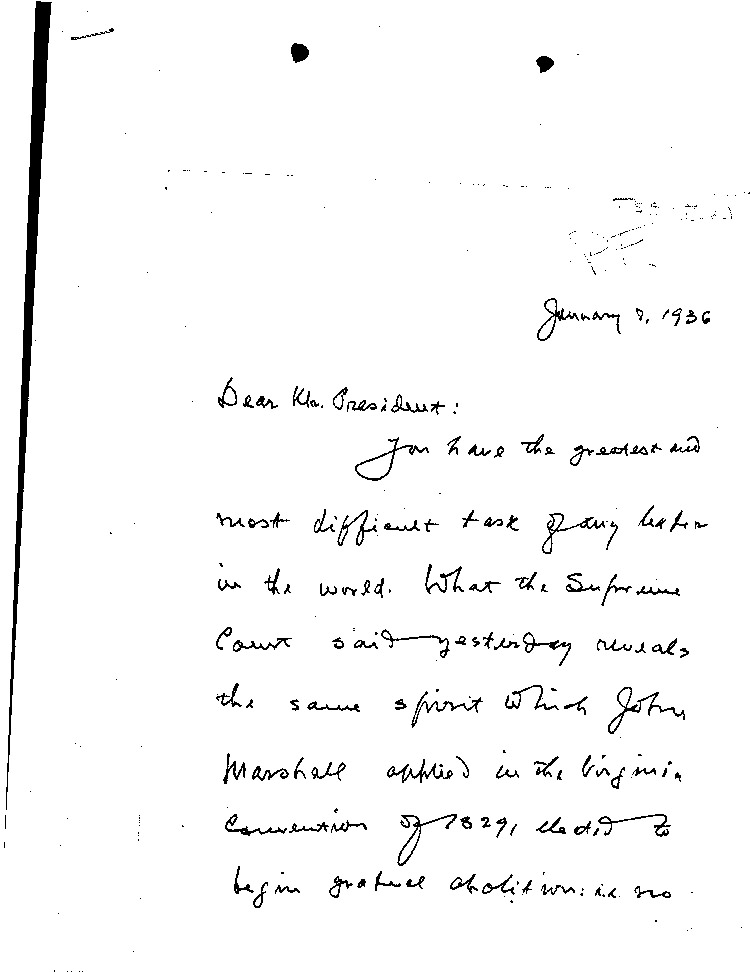 P.P.F.
January 7, 1936
Dear Mr. President:
You have the greatest and
most difficult task of any leader
in the world. What the Supreme
Court said yesterday reveals
the same spirit which John
Marshall applied in the Virginia
Convention of 1829, elected to
begin gradual abolition: i.e. no